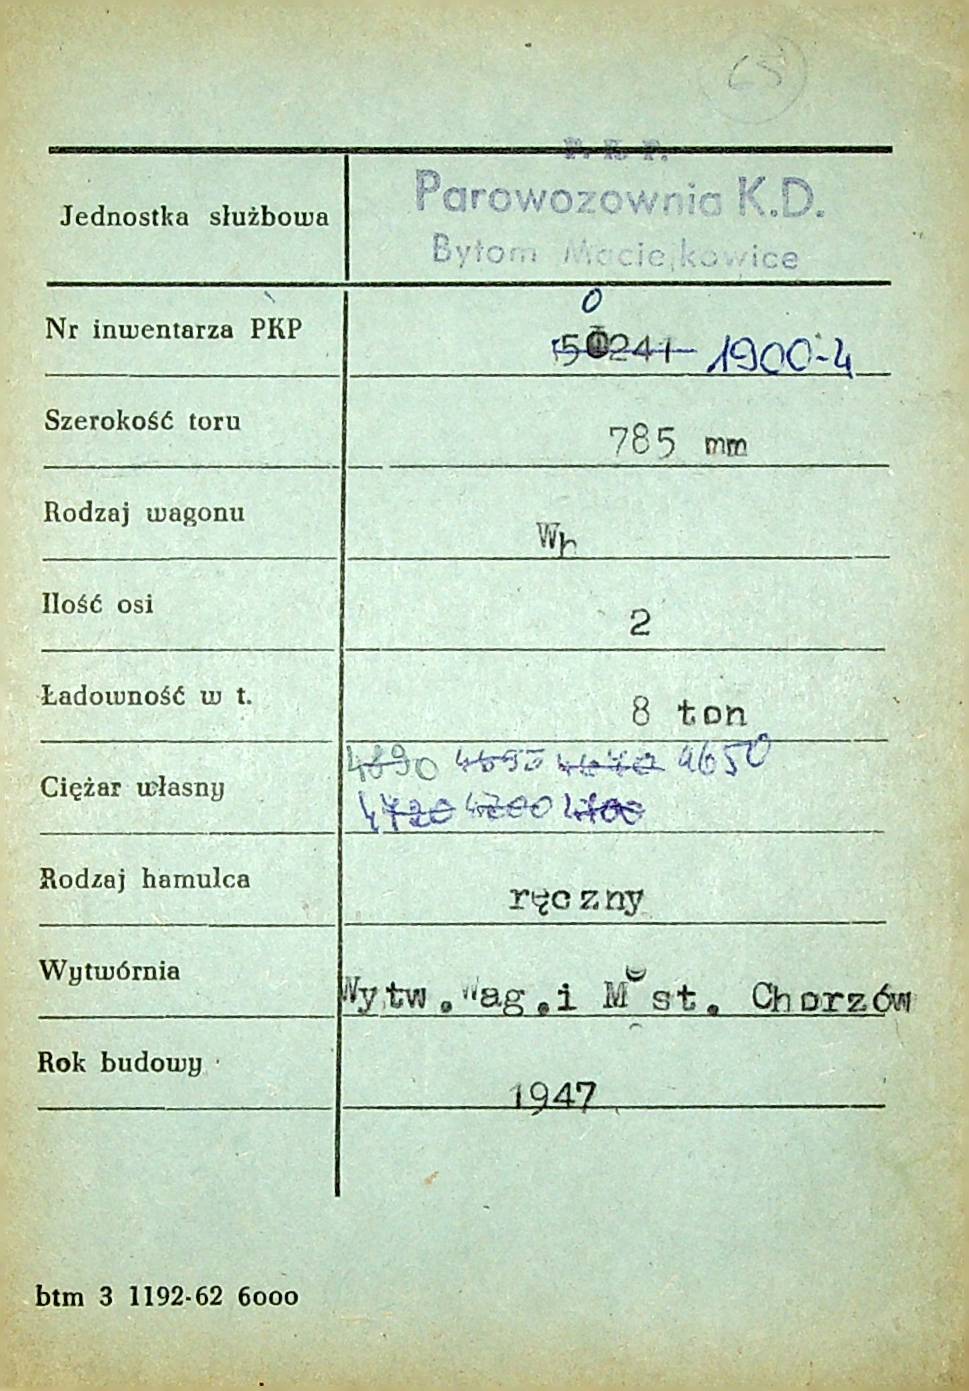 65
P. K P.
Jednostka służbowa Parowozownia K.D.
Bytom Maciejkowice
0
Nr inwentarza PKP 50241 1900-4
Szerokość toru 785 mm
Rodzaj wagonu Wh
Ilość osi 2
Ładowność w t. 8 ton
4890 4695 4640 4650
Ciężar własny
4720 4700
Rodzaj hamulca ręczny
Wytwórnia Wytw.Wag.i Most. Chorzów
Rok budowy 1947
btm 3 1192-62 6000